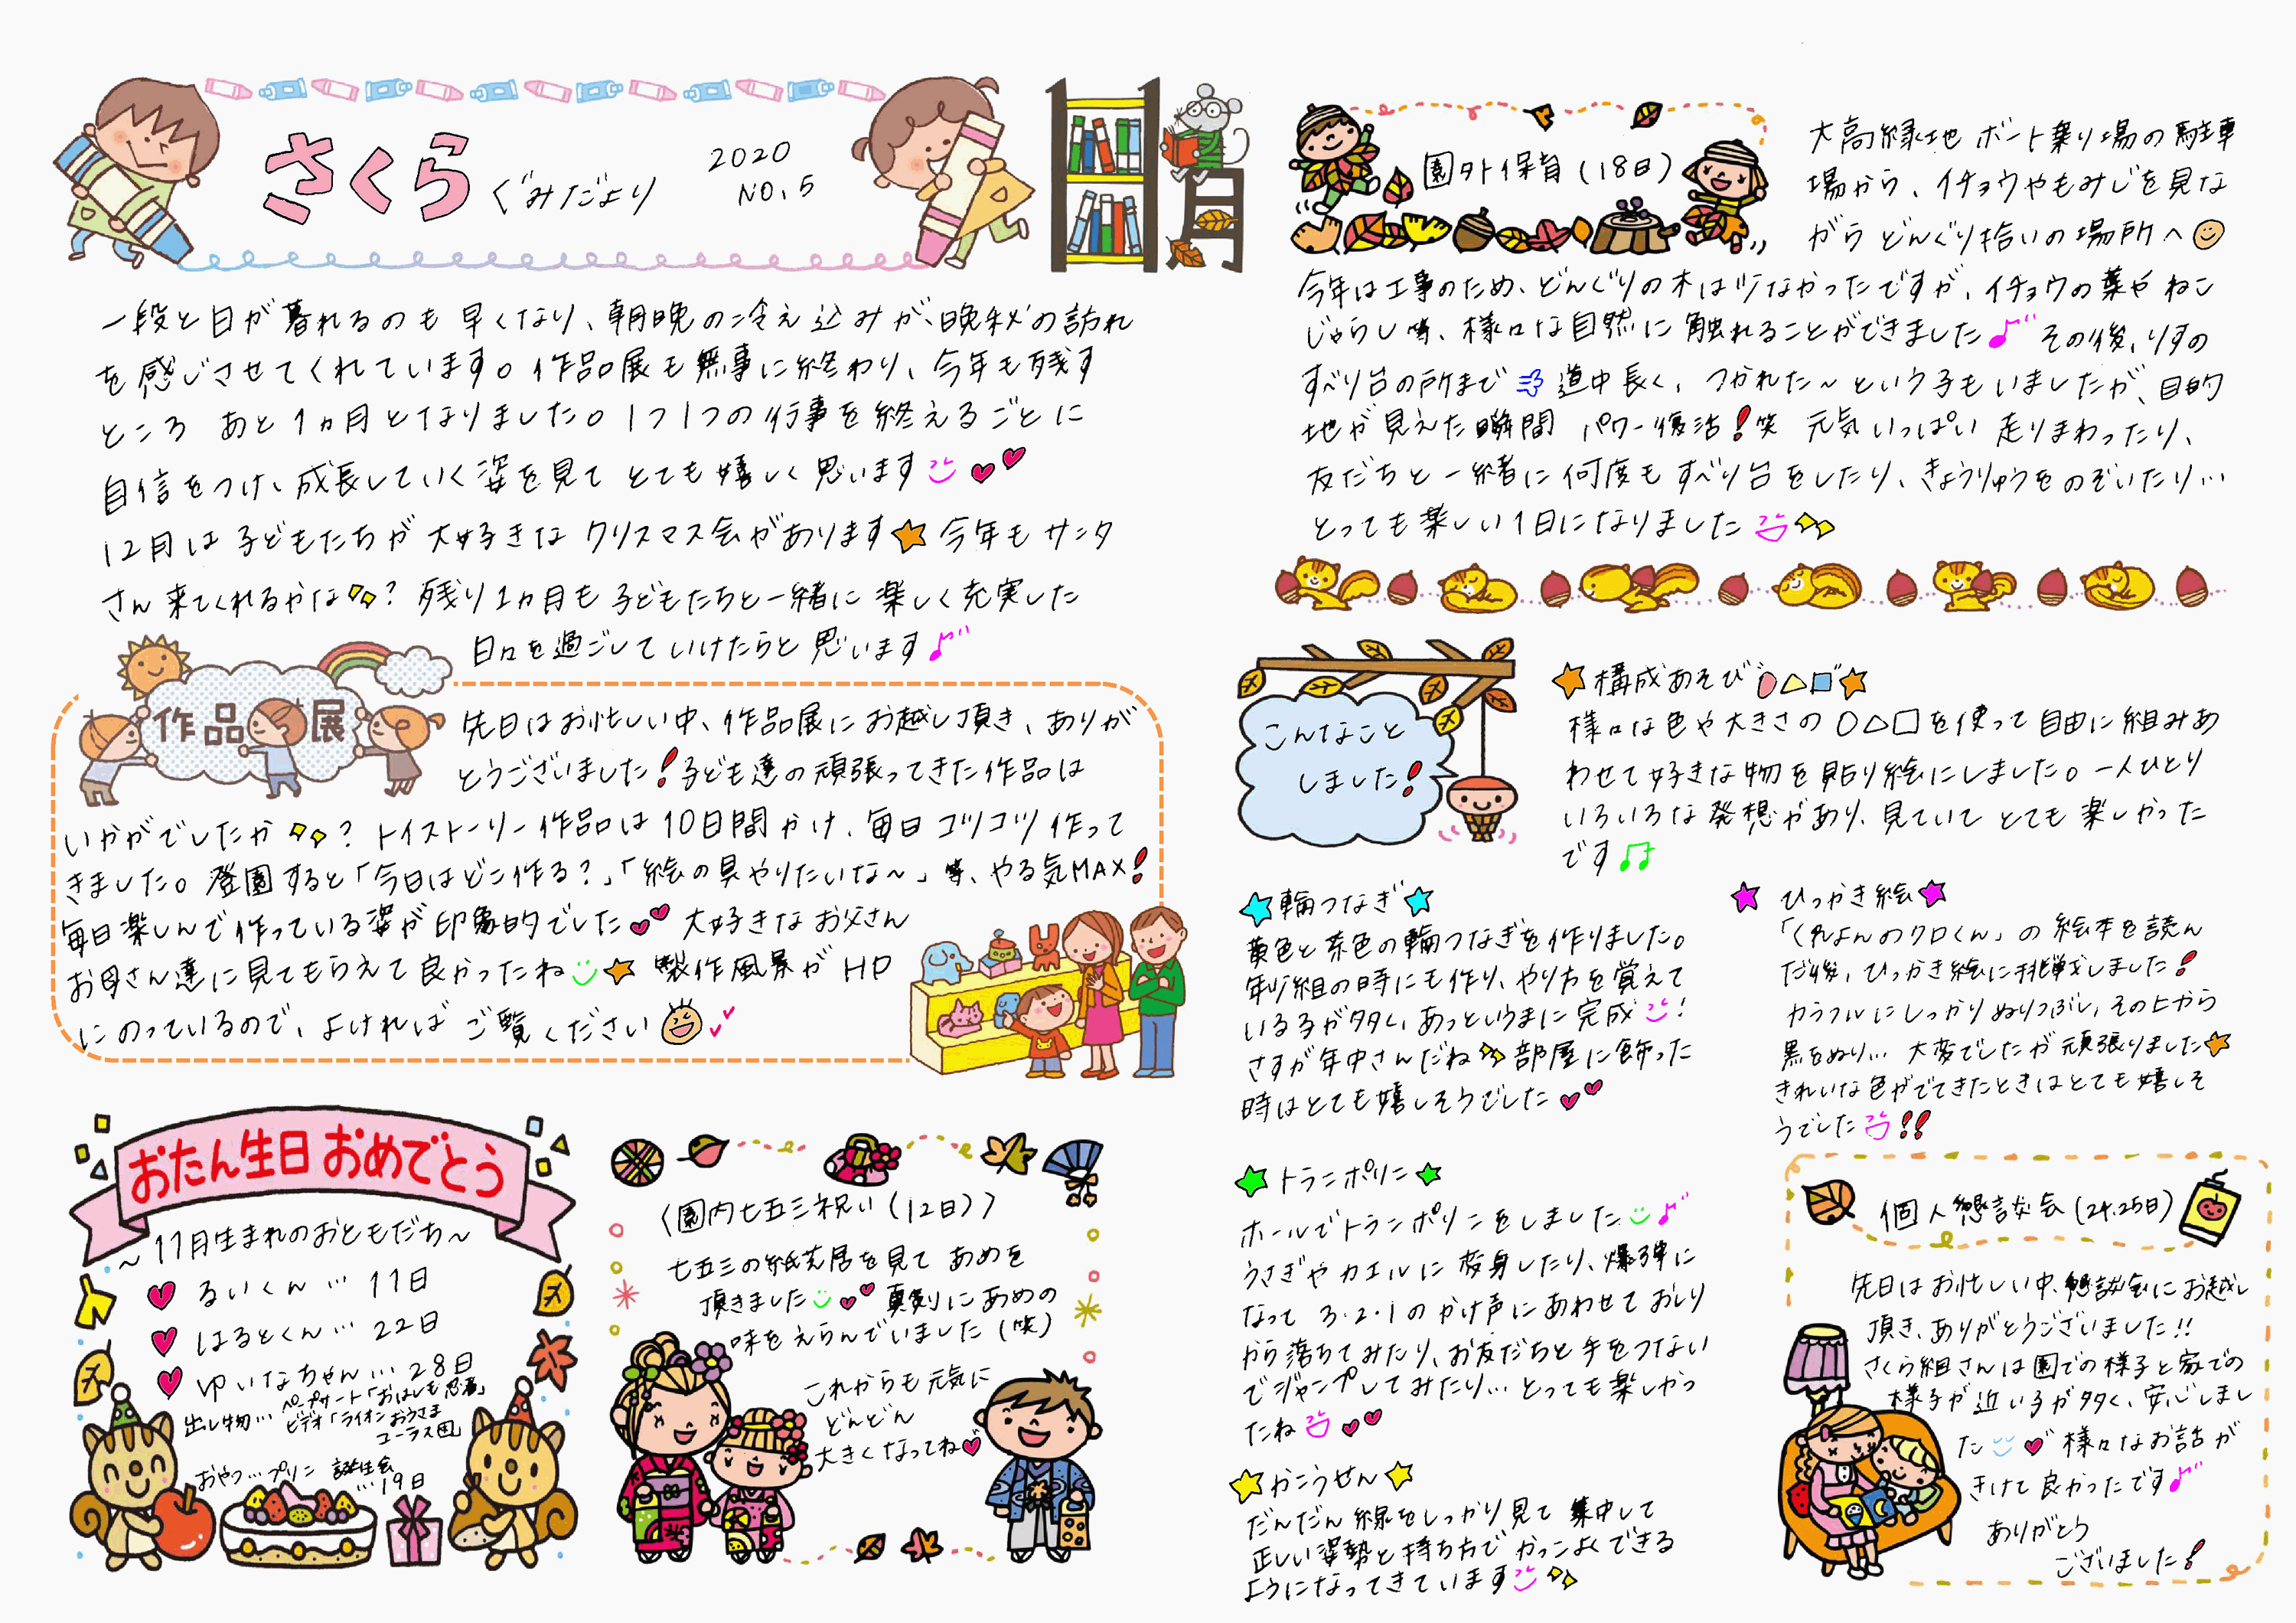 さくら ぐみだより
2020
NO.5
11月
一段と日が暮れるのも早くなり、朝晩の冷え込みが、晩秋の訪れ
を感じさせてくれています。作品展も無事に終わり、今年も残す
ところ あと1ヵ月となりました。1つ1つの行事を終えるごとに
自信をつけ、成長していく姿を見て とても嬉しく思います
12月は子どもたちが大好きな クリスマス会があります☆今年もサンタ
さん来てくれるかな?残り1ヵ月も子どもたちと一緒に楽しく充実した
日々を過ごしていけたらと思います♪
作品展
先日はお忙しい中、作品展にお越し頂き、ありが
とうございました!子ども達の頑張ってきた作品は
いかがでしたか?トイストーリー作品は10日間かけ、毎日コツコツ作って
きました。登園すると「今日はどこ作る?」「絵の具やりたいな〜」等、やる気MAX!
毎日楽しんで作っている姿が印象的でした 大好きなお父さん
お母さん達に見てもらえて良かったね☆製作風景がHP
にのっているので、よければご覧ください
おたん生日おめでとう
〜11月生まれのおともだち〜
るいくん…11日
はるとくん…22日
ゆいなちゃん…28日
出し物…ペープサート「おはしも忍者」
ビデオ「ライオンおうさま
コーラス団」
おやつ…プリン 誕生会
…19日
〈園内七五三祝い(12日)〉
七五三の紙芝居を見て あめを
頂きました 真剣にあめの
味をえらんでいました(笑)
これからも元気に
どんどん
大きくなってね
園外保育(18日)
大高緑地 ボート乗り場の駐車
場から、イチョウやもみじを見な
がら どんぐり拾いの場所へ
今年は工事のため、どんぐりの木は少なかったですが、イチョウの葉やねこ
じゃらし等、様々な自然に触れることができました♪その後、りすの
すべり台の所まで 道中長く、つかれた〜という子もいましたが、目的
地が見えた瞬間 パワー復活!笑 元気いっぱい 走りまわったり、
友だちと一緒に何度もすべり台をしたり、きょうりゅうをのぞいたり…
とっても楽しい1日になりました
こんなこと
しました!
☆構成あそび○△□☆
様々な色や大きさの○△□を使って自由に組みあ
わせて好きな物を貼り絵にしました。一人ひとり
いろいろな発想があり、見ていて とても楽しかった
です♫
☆輪つなぎ☆
黄色と茶色の輪つなぎを作りました。
年少組の時にも作り、やり方を覚えて
いる子が多く、あっというまに完成!
さすが年中さんだね 部屋に飾った
時はとても嬉しそうでした
★ひっかき絵★
「くれよんのクロくん」の絵本を読ん
だ後、ひっかき絵に挑戦しました!
カラフルにしっかりぬりつぶし、その上から
黒をぬり…大変でしたが頑張りました☆
きれいな色がでてきたときはとても嬉しそ
うでした!!
☆トランポリン☆
ホールでトランポリンをしました♪
うさぎやカエルに変身したり、爆弾に
なって 3・2・1のかけ声にあわせて おしり
から落ちてみたり、お友だちと手をつない
でジャンプしてみたり…とっても楽しかっ
たね
☆かこうせん☆
だんだん線をしっかり見て集中して
正しい姿勢と持ち方でかっこよくできる
ようになってきています
個人懇談会(24.25日)
先日はお忙しい中、懇談会にお越し
頂き、ありがとうございました!!
さくら組さんは園での様子と家での
様子が近い子が多く、安心しまし
た 様々なお話が
きけて良かったです♪
ありがとう
ございました!